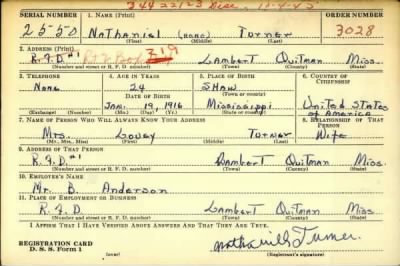 34422123 Disc. 11-4-45
SERIAL NUMBER 1. NAME (Print) ORDER NUMBER
2550 Nathaniel (NONE) Turner 3028
2. ADDRESS (Print)
R.F.D.#1 R+2 Box 319 Lambert Quitman Miss.
(Number and street or R. F. D. number) (Town) (County) (State)
3. TELEPHONE 4. AGE IN YEARS 5. PLACE OF BIRTH 6. COUNTRY OF CITIZENSHIP
None 24 SHAW
DATE OF BIRTH (Town or county)
JAN. 19, 1916 Mississippi United States of America
(Exchange) (Number) (Mo.) (Day) (Yr.) (State or country)
7. NAME OF PERSON WHO WILL ALWAYS KNOW YOUR ADDRESS 8. RELATIONSHIP OF THAT PERSON
Mrs. Lovey Turner Wife
(Mr., Mrs., Miss) (First) (Middle) (Last)
9. ADDRESS OF THAT PERSON
R.F.D.#1 Lambert Quitman Miss.
(Number and street or R. F. D. number) (Town) (County) (State)
10. EMPLOYER'S NAME
Mr. B. Anderson
11. PLACE OF EMPLOYMENT OR BUSINESS
R.F.D. Lambert Quitman Miss.
(Number and street or R. F. D. number) (Town) (County) (State)
I AFFIRM THAT I HAVE VERIFIED ABOVE ANSWERS AND THAT THEY ARE TRUE.
REGISTRATION CARD
D. S. S. Form 1 (over) Nathaniel Turner
(Registrant's signature)